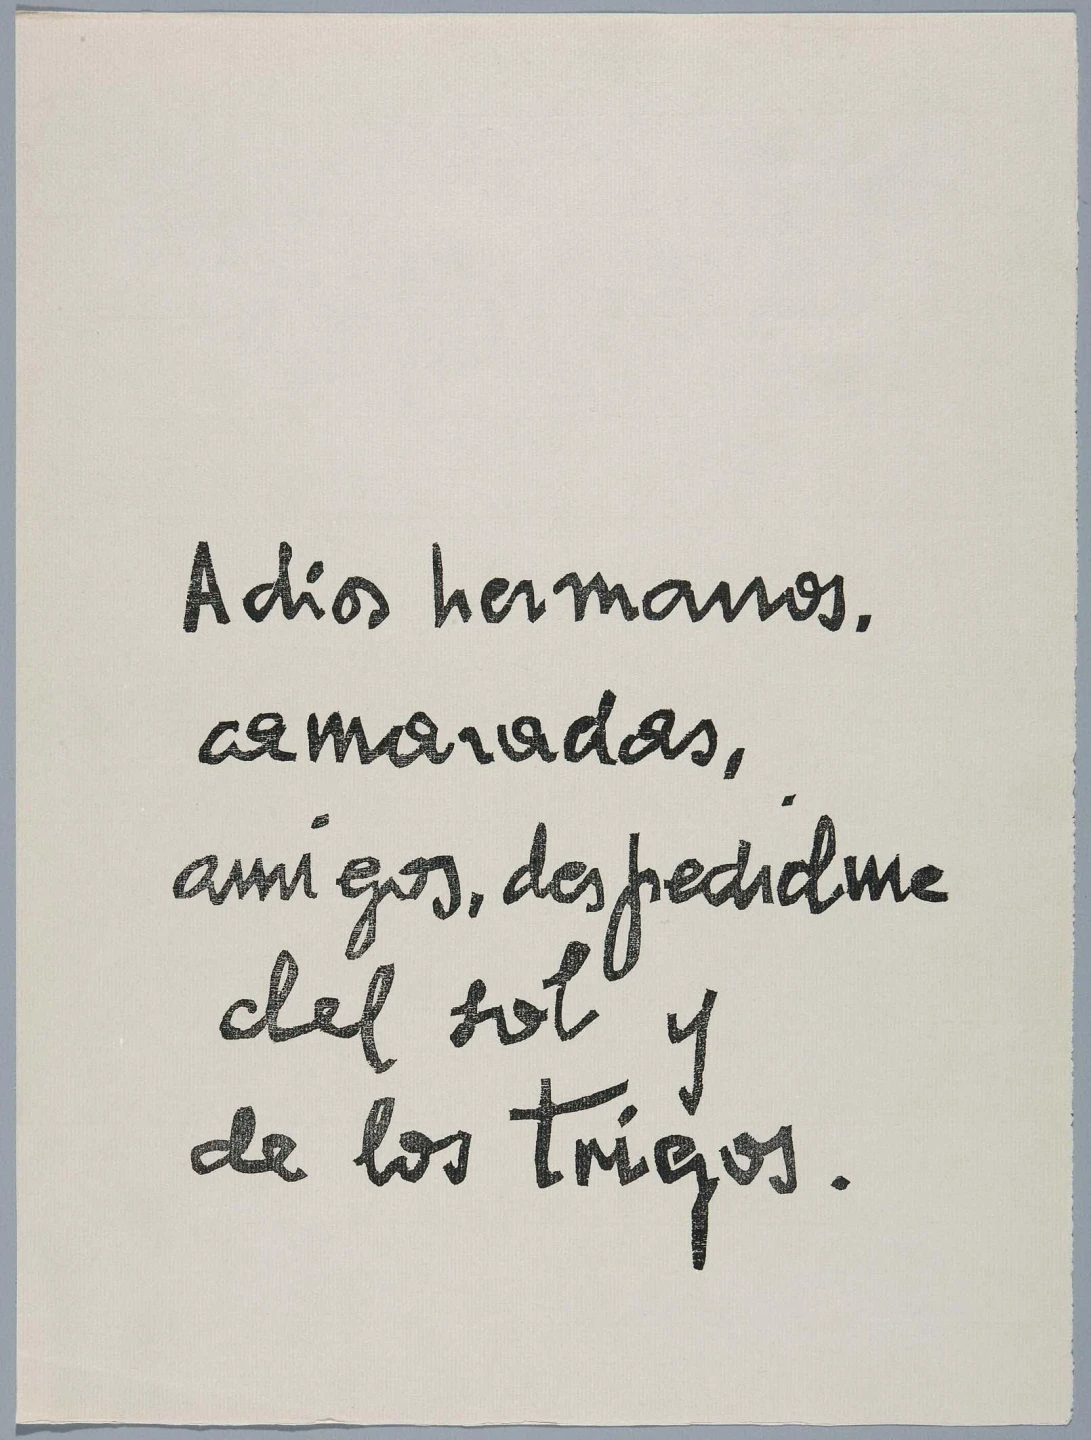 Adios hermanos,
camaradas,
amigos, despedidme
del sol y
de los trigos.